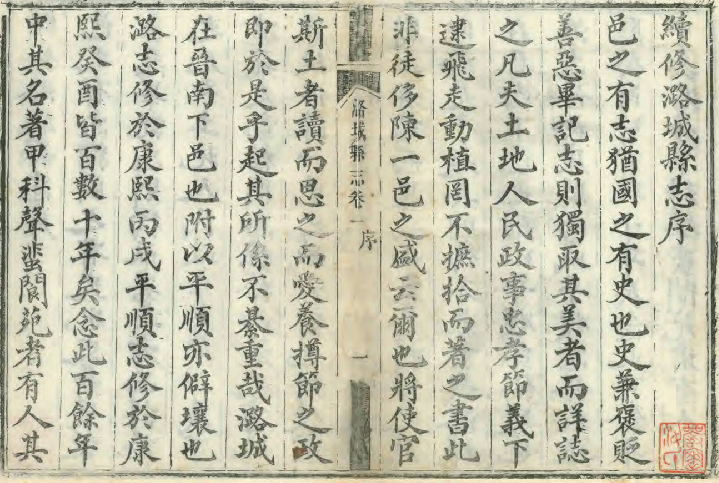 續修潞城縣志序
邑之有志猶國之有史也史兼褒貶
善惡畢記志則獨取其美者而詳誌
之凡夫土地人民政事忠孝節義下
逮飛走動植罔不摭拾而著之書此
非徒侈陳一邑之盛云爾也將使官
潞城縣志卷一
序
一
斯土者讀而思之而愛養撙節之政
即於是乎起其所係不綦重哉潞城
在晉南下邑也附以平順亦僻壤也
潞志修於康熙丙戌平順志修於康
熙癸酉皆百數十年矣念此百餘年
中其名著甲科聲蜚閬苑者有人其